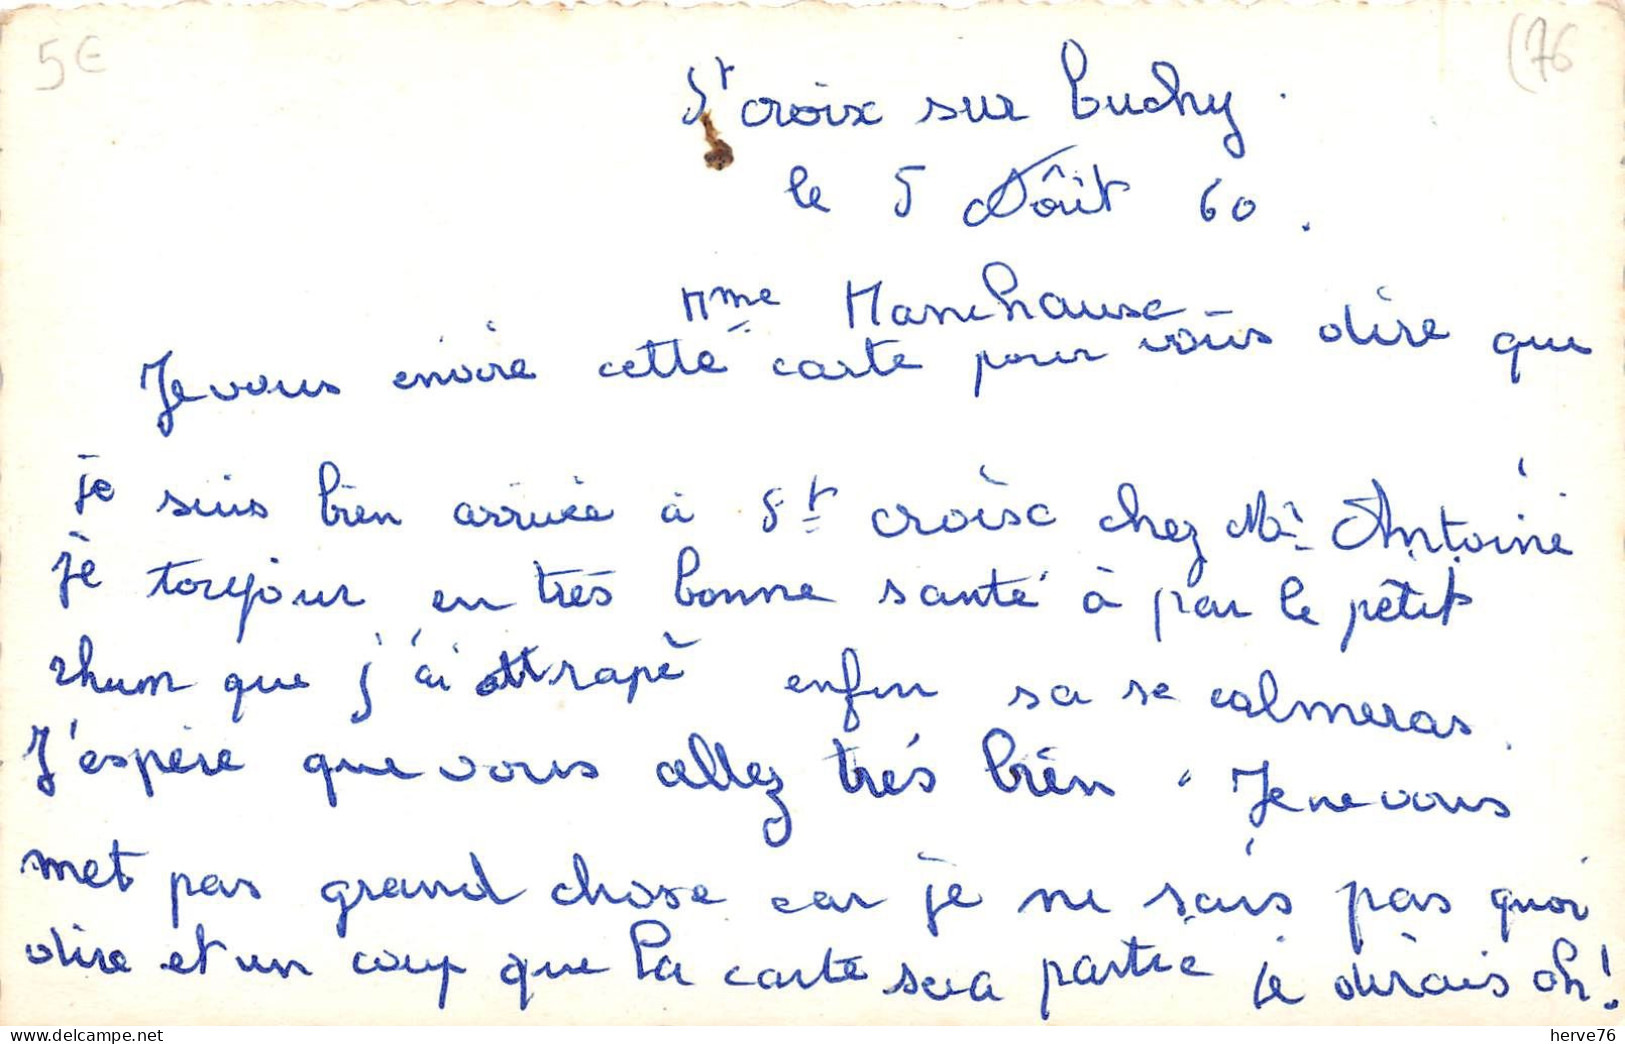 5€
(76
St croix sur Buchy.
le 5 Aôut 60.
Mme Manchause
Je vous envoie cette carte pour vous dire que
je suis bien arrivée à St croise chez Mr Antoine
je toujour en très bonne santé à par le petit
rhum que j'ai attrapé enfin sa se calmeras.
J'espére que vous allez trés bien. Je ne vous
met pas grand chose car je ne sais pas quoi
dire et un coup que la carte sera partie je dirais oh!
herve76